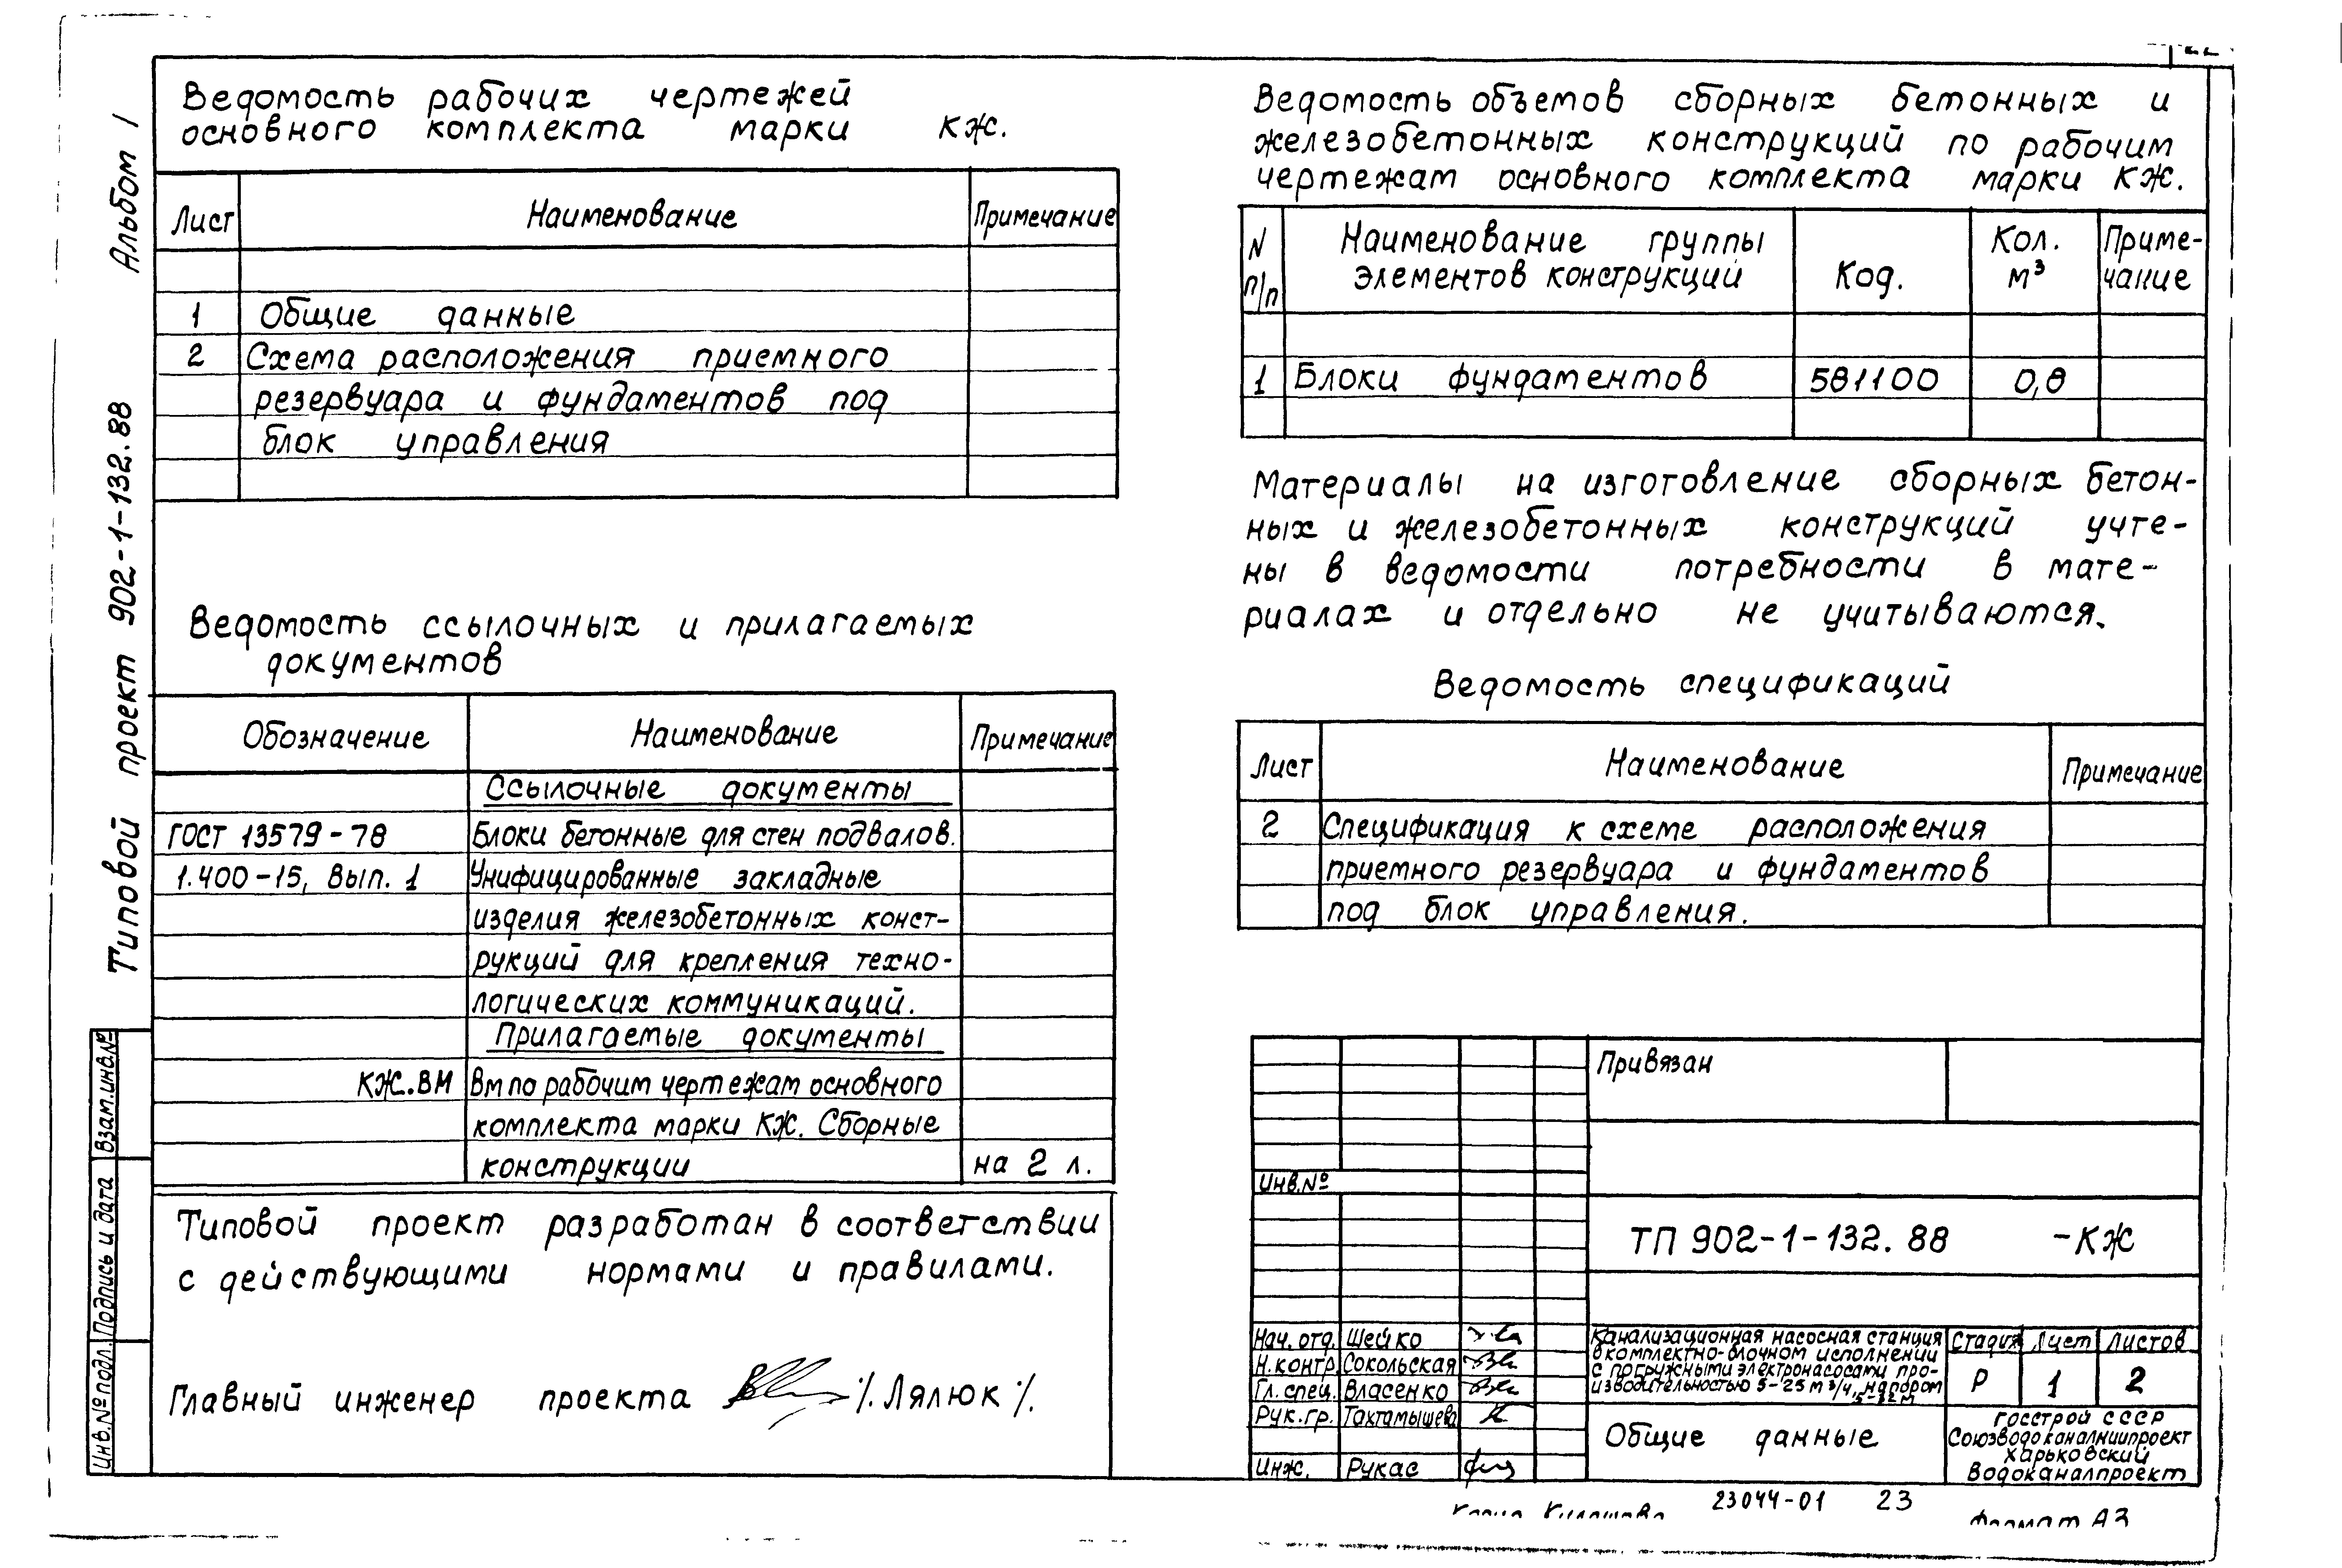 Альбом 1
Типовой проект 902-1-132.88
Взам.инв.№
Подпись и дата
Инв.№ подл.
Ведомость рабочих чертежей
основного комплекта марки КЖ.
Лист Наименование Примечание
1 Общие данные
2 Схема расположения приемного
резервуара и фундаментов под
блок управления
Ведомость ссылочных и прилагаемых
документов
Обозначение Наименование Примечание
Ссылочные документы
ГОСТ 13579-78 Блоки бетонные для стен подвалов.
1.400-15, Вып. 1 Унифицированные закладные
изделия железобетонных конст-
рукций для крепления техно-
логических коммуникаций.
Прилагаемые документы
КЖ.ВМ Вм по рабочим чертежам основного
комплекта марки КЖ. Сборные
конструкции на 2 л.
Типовой проект разработан в соответствии
с действующими нормами и правилами.
Главный инженер проекта /. Лялюк /.
Ведомость объемов сборных бетонных и
железобетонных конструкций по рабочим
чертежам основного комплекта марки КЖ.
N п/п Наименование группы элементов конструкций Код. Кол. м³ Приме-чание
1 Блоки фундаментов 581100 0,8
Материалы на изготовление сборных бетон-
ных и железобетонных конструкций учте-
ны в ведомости потребности в мате-
риалах и отдельно не учитываются.
Ведомость спецификаций
Лист Наименование Примечание
2 Спецификация к схеме расположения
приемного резервуара и фундаментов
под блок управления.
Привязан
Инв.№
ТП 902-1-132.88 -КЖ
Нач. отд. Шейко
Н.контр. Сокольская
Гл. спец. Власенко
Рук.гр. Тахтамышева
Инж. Рукас
Канализационная насосная станция
в комплектно-блочном исполнении
с погружными электронасосами про-
изводительностью 5-25 м³/ч, напором
5-32 м
Стадия Лист Листов
Р 1 2
Общие данные
Госстрой СССР
Союзводоканалниипроект
Харьковский
Водоканалпроект
23044-01 23
Формат А3